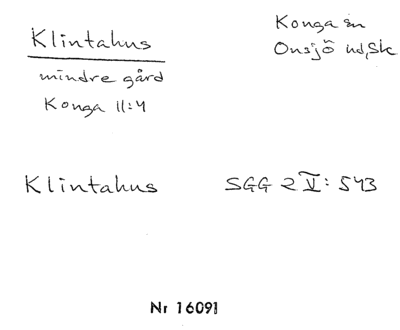 Klintahus
Konga sn
Onsjö hd, Sk
mindre gård
Konga 11:4
Klintahus SGG 2 V: 543
Nr 16091